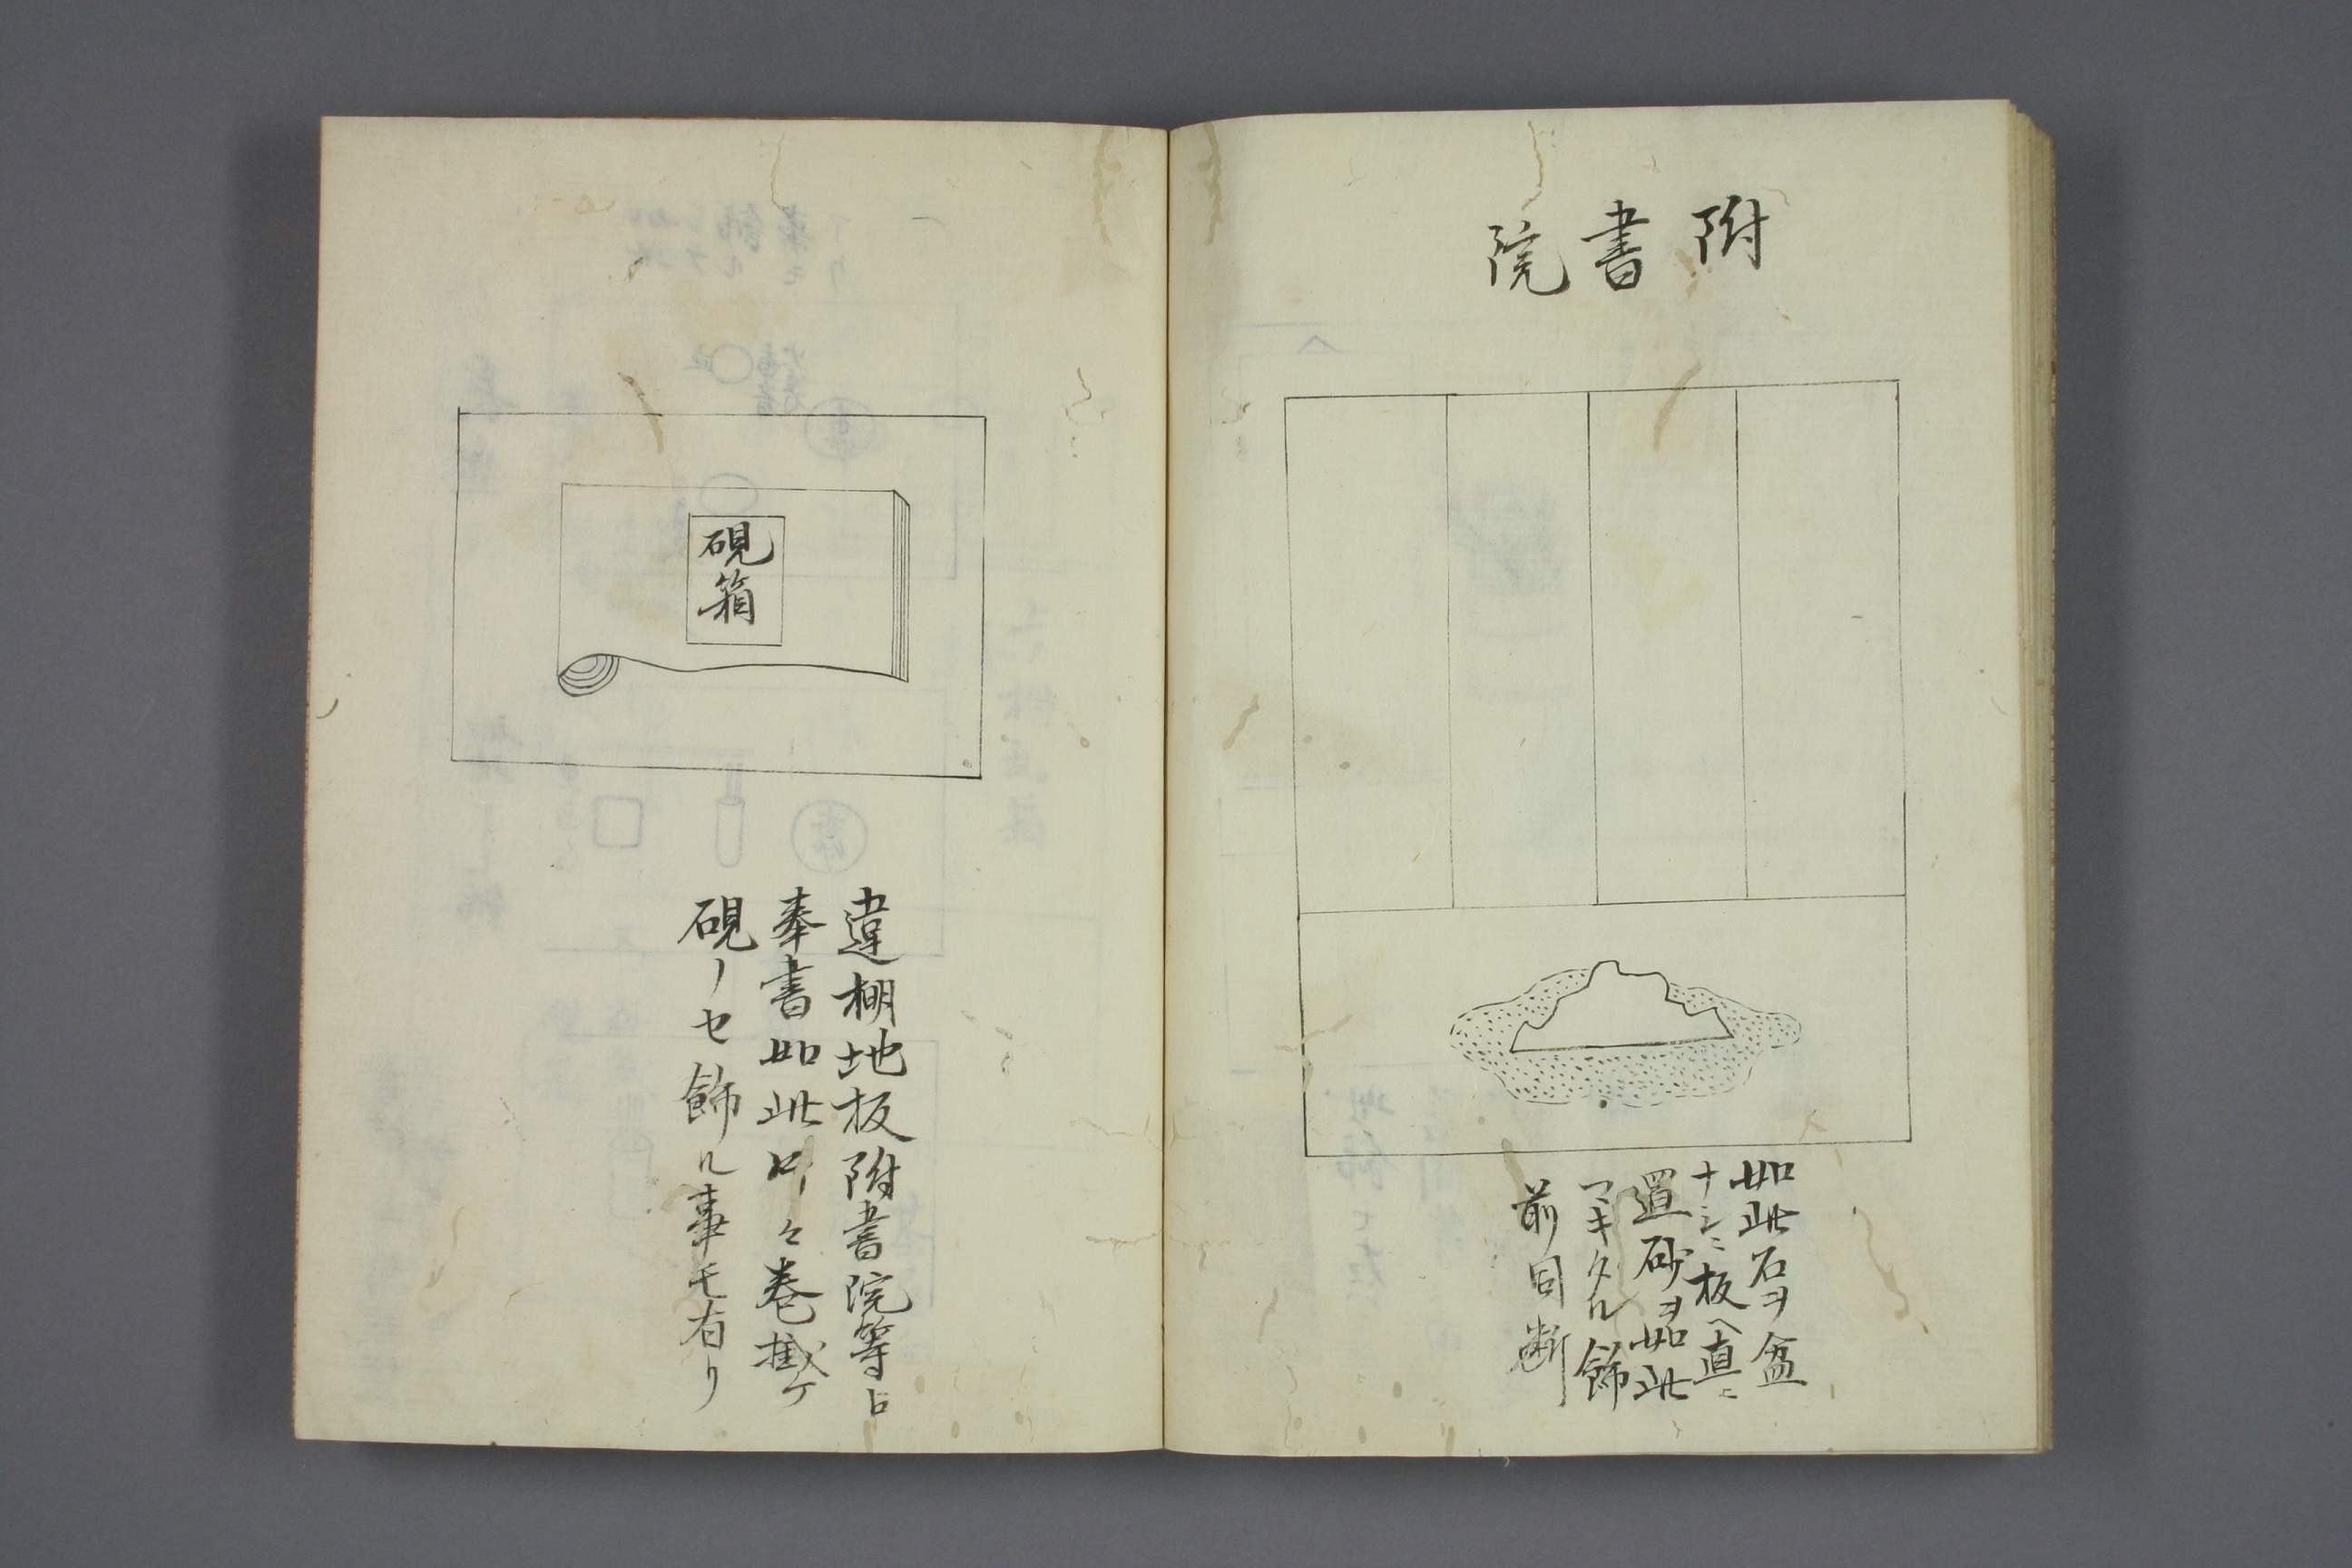 附書院
如此石ヲ盆
ナシニ板ヘ直ニ
置砂ヲ如此
マキタル飾
前同断
硯箱
違棚地板附書院等
奉書如此々巻掛ケ
硯ノセ飾ル事モ有リ